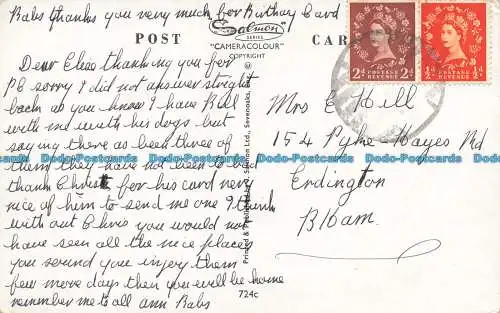 Babs thanks you very much for Birthday Card
POST
Salmon
SERIES
"CAMERACOLOUR"
COPYRIGHT
CARD
2d POSTAGE REVENUE 2d
½d POSTAGE REVENUE ½d
Dear Elsie thanking you for
P C sorry I did not answer streight
back as you know I have Bill
with me with his dogs but
say ing there as been three of
them they have not been to bad
thank Christ for his card very
nice of him to send me one I think
with out Chris you would not
have seen all the nice places
you sound you injoy them
few more days then you will be home
remember me to all ann Babs
Mrs E Hill
154 Pype-Hayes Rd
Erdington
B'Ham.
Printed & Published by J. Salmon Ltd., Sevenoaks,
724c
Dodo-Postcards Dodo-Postcards Dodo-Postcards Dodo-Postcards Dodo-Postcards